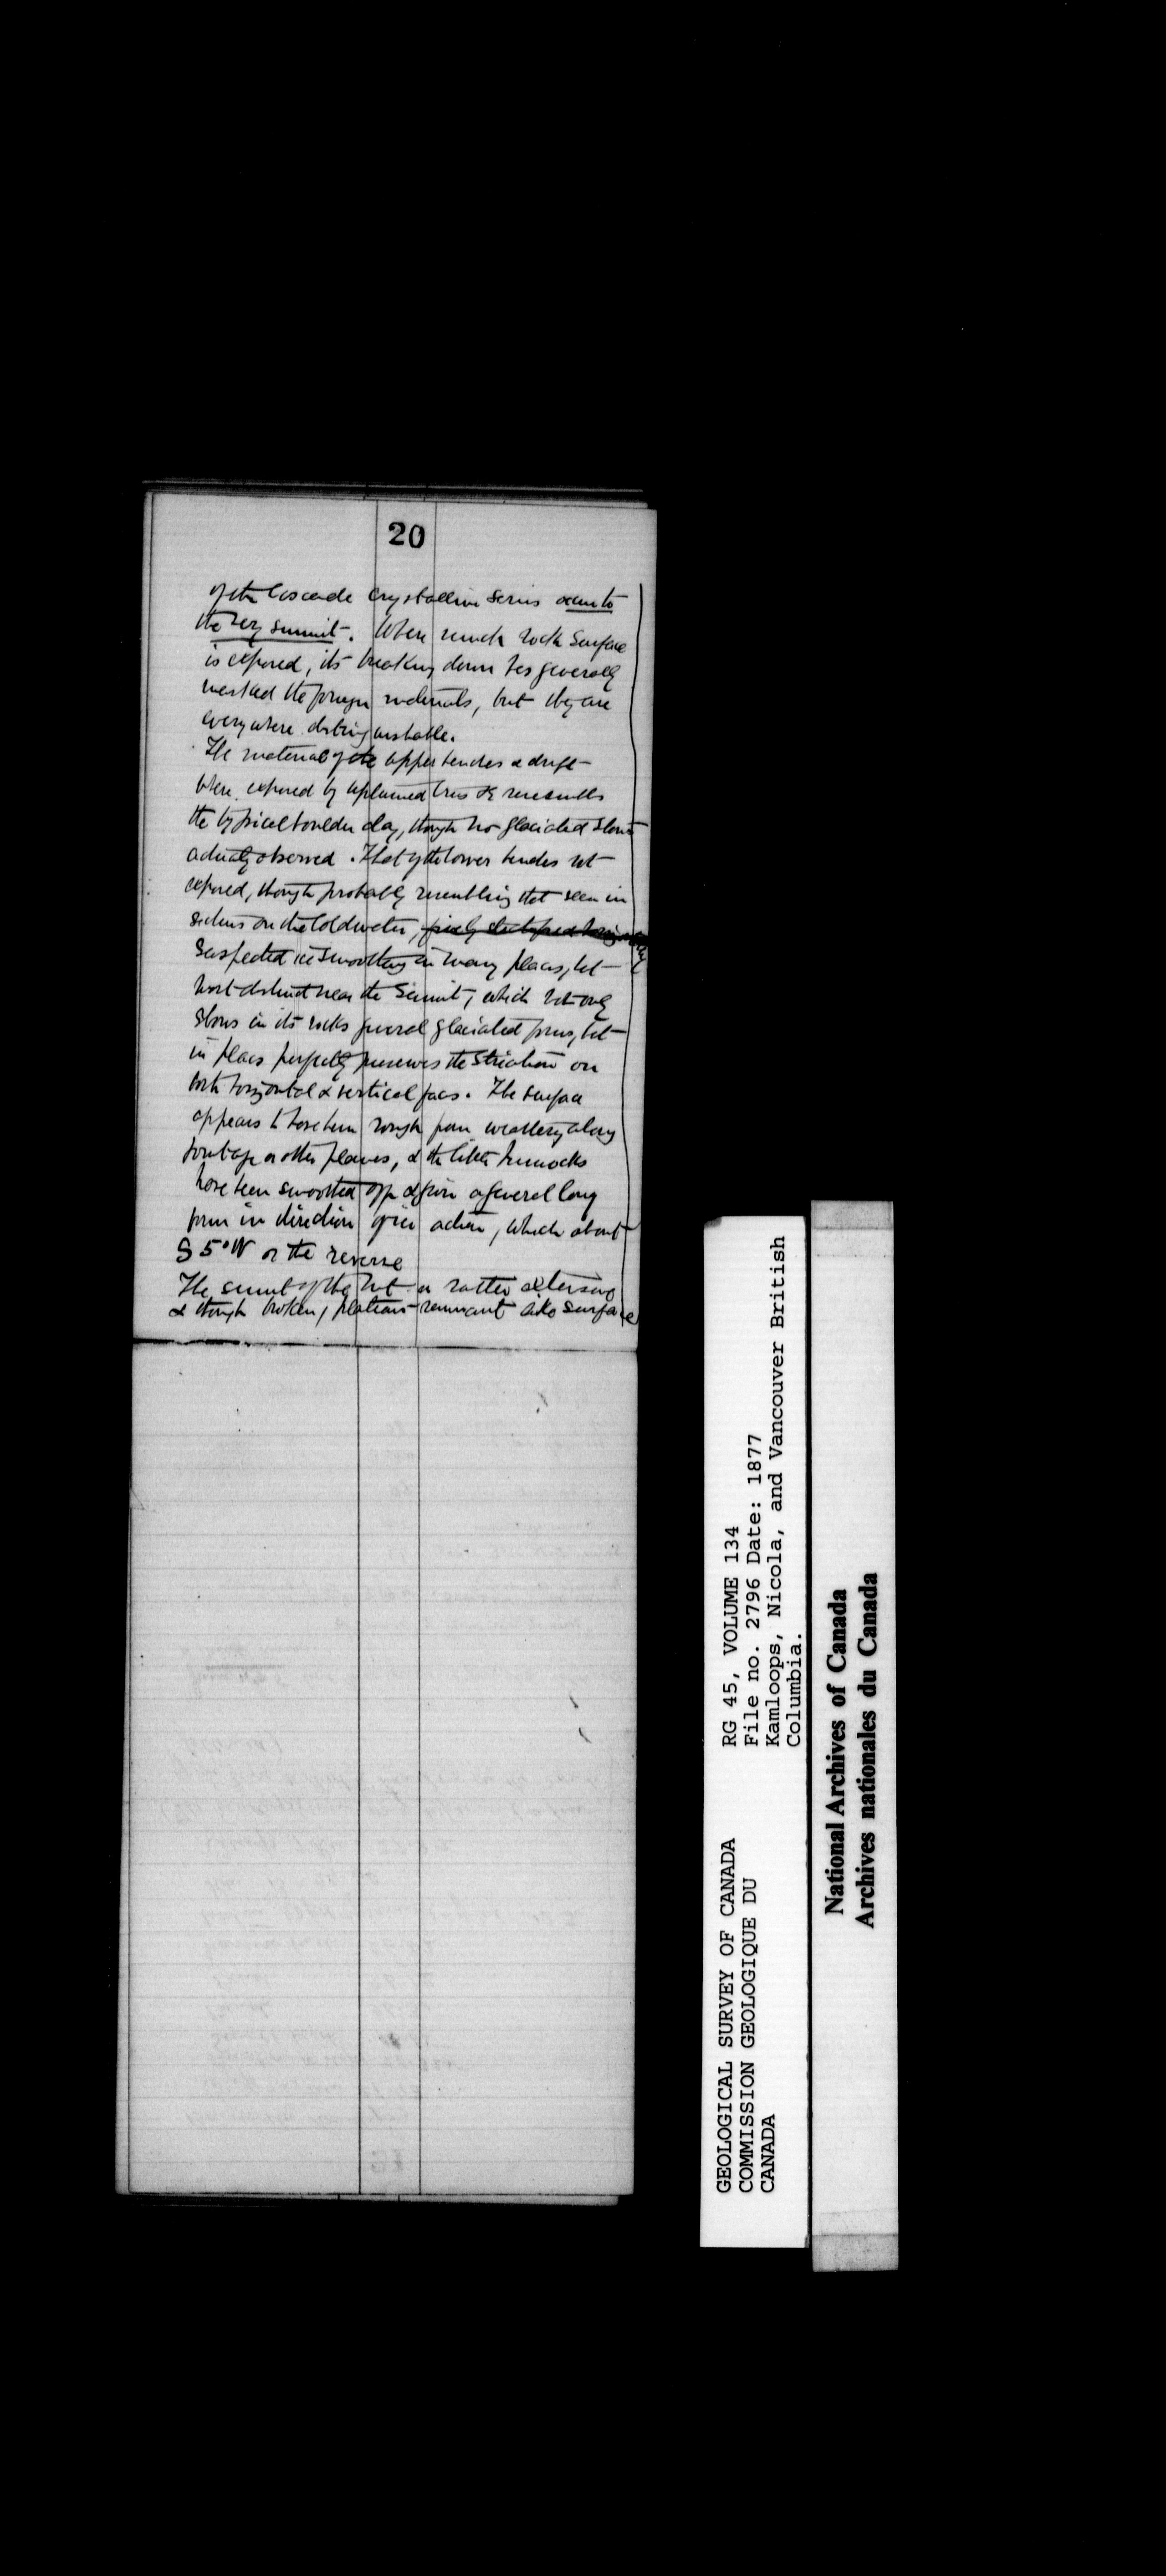 20
of the Cascade Crystalline series occur to
the very summit. Where much rock surface
is exposed, its breaking down has generally
masked the foreign materials, but they are
everywhere distinguishable.
The material of the upper benches & drift
where exposed by upturned trees &c resembles
the typical boulder clay, though no glaciated stones
actually observed. That of the lower benches not
exposed, though probably resembling that seen in
sections on the Coldwater,
Suspected ice smoothing in many places, but
most distinct near the Summit, which not only
shows in its rocks general glaciated forms, but
in places perfectly preserves the striation on
both horizontal & vertical faces. The surface
appears to have been rough from weathering along
jointage or other planes, & the little hummocks
have been smoothed off & given a general long
form in direction of ice action, which about
S 5° W or the reverse
The summit of the Mt a rather extensive
& though broken, plateau-remnant surface
GEOLOGICAL SURVEY OF CANADA
COMMISSION GEOLOGIQUE DU
CANADA
RG 45, VOLUME 134
File no. 2796 Date: 1877
Kamloops, Nicola, and Vancouver British
Columbia.
National Archives of Canada
Archives nationales du Canada